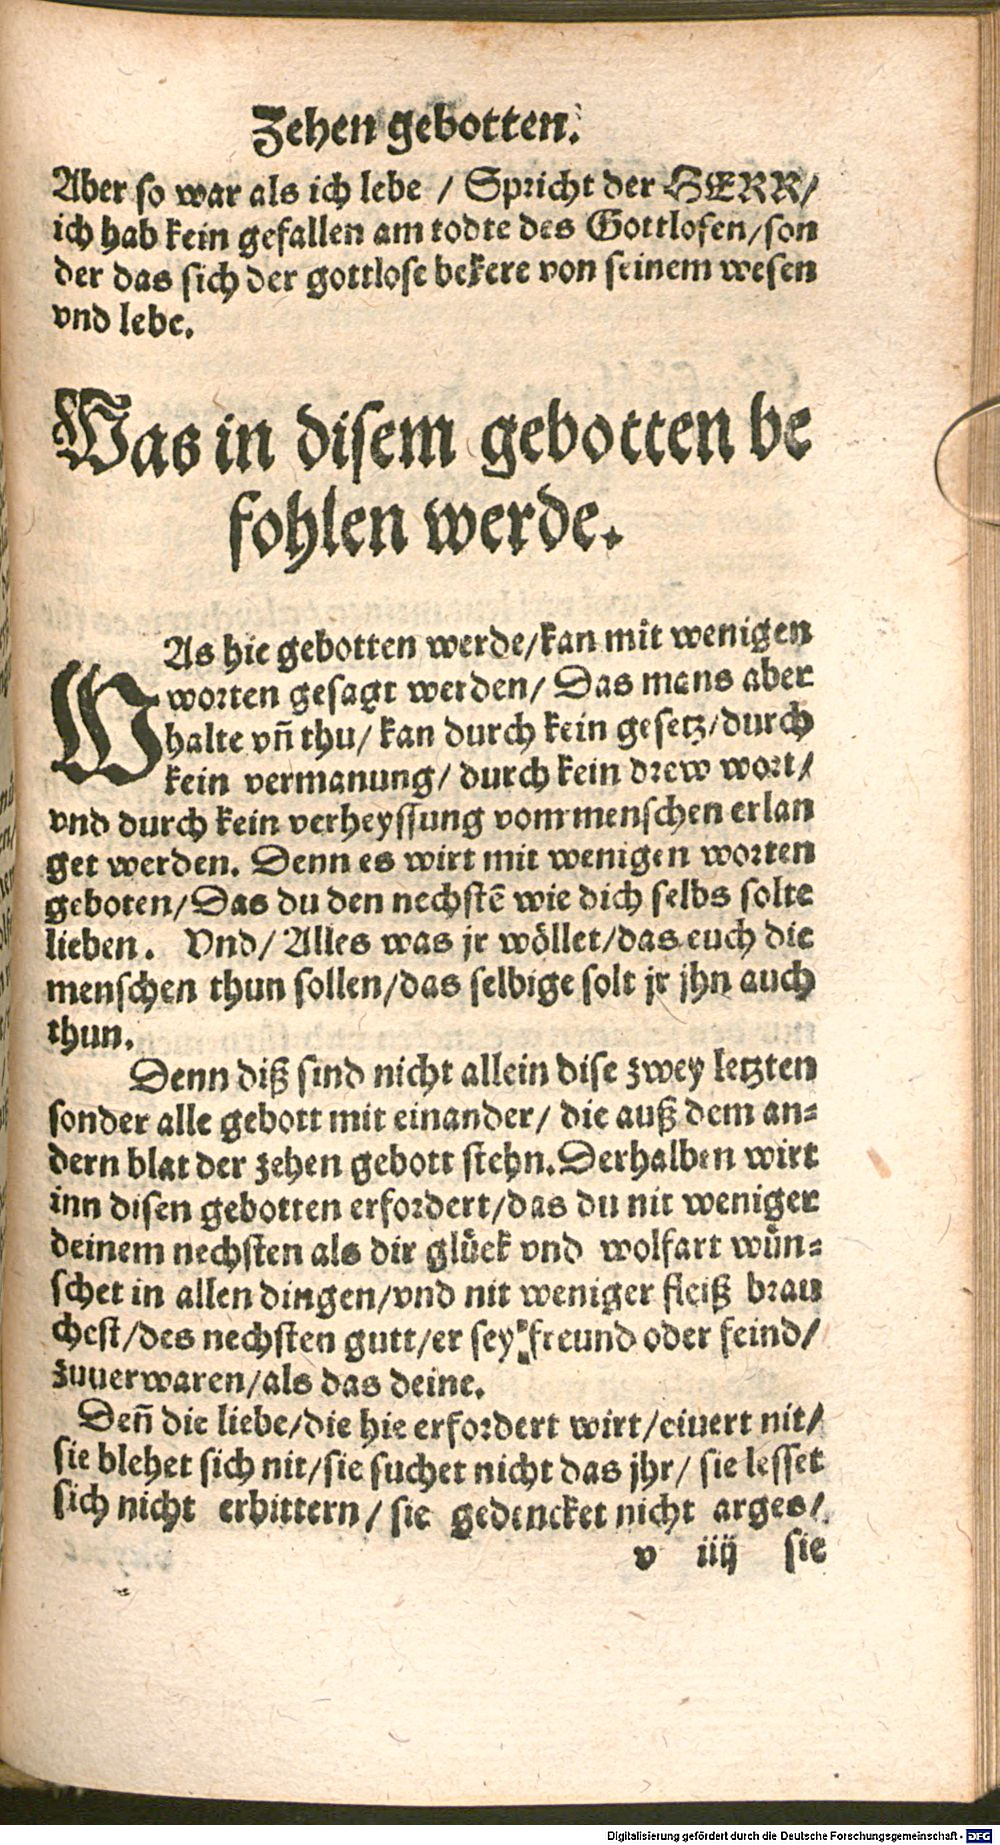 Zehen gebotten.
Aber so war als ich lebe / Spricht der HERR/
ich hab kein gefallen am todte des Gottlosen/son
der das sich der gottlose bekere von seinem wesen
vnd lebe.
Was in disem gebotten be
fohlen werde.
WAs hie gebotten werde/kan mit wenigen
worten gesagt werden/ Das mans aber
halte vñ thu/ kan durch kein gesetz/durch
kein vermanung/ durch kein drew wort/
vnd durch kein verheyssung vom menschen erlan
get werden. Denn es wirt mit wenigen worten
geboten/Das du den nechstē wie dich selbs solte
lieben. Vnd/ Alles was jr wöllet/das euch die
menschen thun sollen/das selbige solt jr jhn auch
thun.
Denn diß sind nicht allein dise zwey letzten
sonder alle gebott mit einander/ die auß dem an=
dern blat der zehen gebott stehn.Derhalben wirt
inn disen gebotten erfordert/das du nit weniger
deinem nechsten als dir glück vnd wolfart wün=
schet in allen dingen/vnd nit weniger fleiß brau
chest/des nechsten gutt/er sey freund oder feind/
zuuerwaren/als das deine.
Deñ die liebe/die hie erfordert wirt/eiuert nit/
sie blehet sich nit/sie suchet nicht das jhr/ sie lesset
sich nicht erbittern/ sie gedencket nicht arges/
v iiij sie
Digitalisierung gefördert durch die Deutsche Forschungsgemeinschaft - DFG